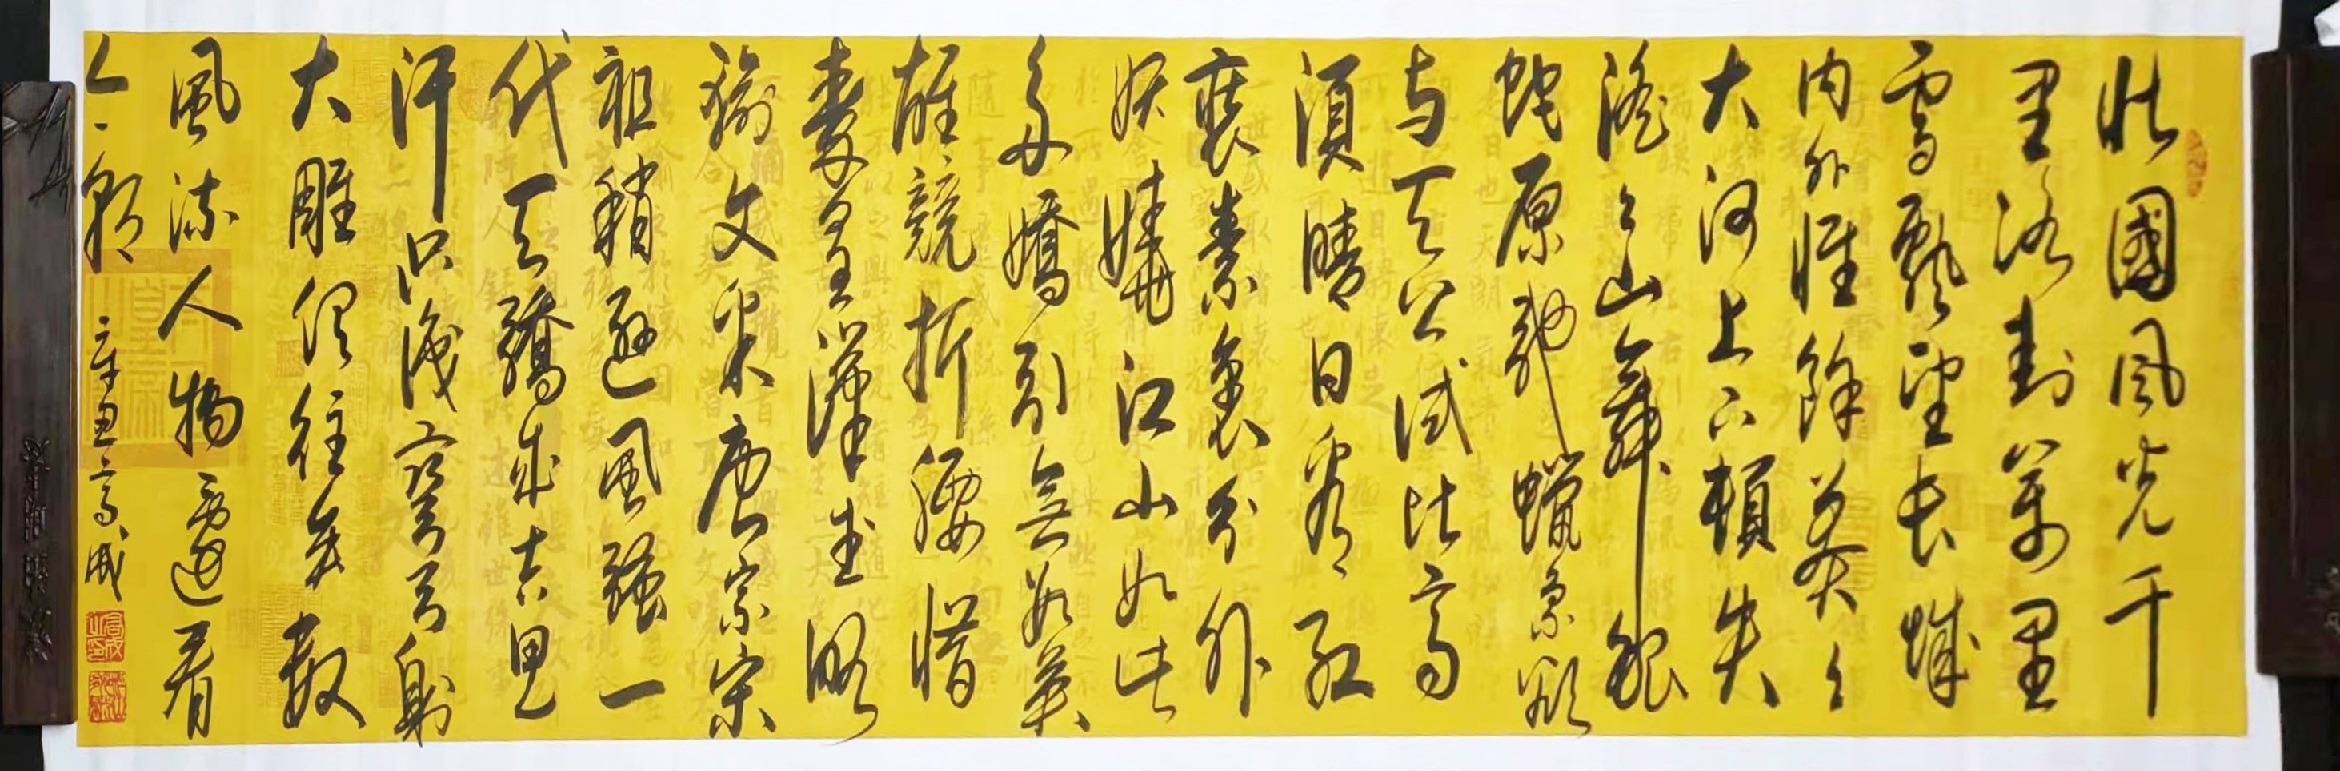 北國風光千
里冰封萬里
雪飄望长城
内外惟餘莽々
大河上下頓失
滔々山舞銀
蛇原馳蠟象欲
与天公試比高
須晴日看红
裝素裹分外
妖嬈江山如此
多嬌引無數英
雄競折腰惜
秦皇漢武略
輸文采唐宗宋
祖稍遜風騷一
代天驕成吉思
汗只識彎弓射
大雕俱往矣數
風流人物還看
今朝 辛丑